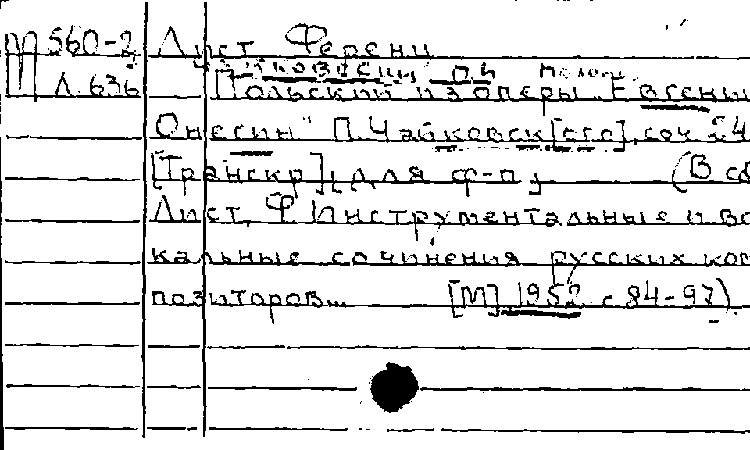 М 560-2 Лист Ференц
Чайковский, П.И.
Л. 636 Польский из оперы "Евгений
Онегин" П. Чайковск[ого], соч 24
[Транскр], для ф-п,
(В сб
Лист, Ф Инструментальные и во
кальные сочинения русских ком
позиторов...
[М], 1952 с 84-97).